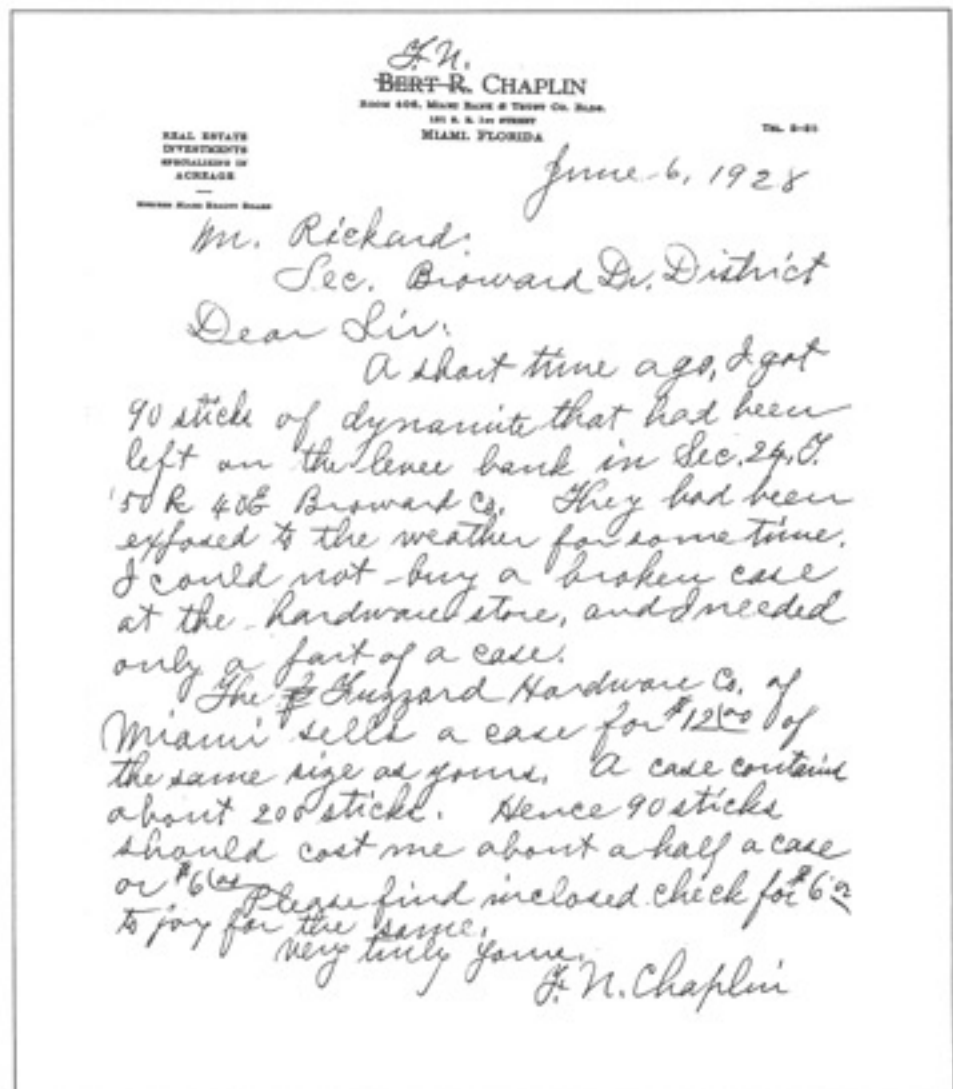 F. N.
BERT R. CHAPLIN
ROOM 406, MIAMI BANK & TRUST CO. BLDG.
101 S. E. 1ST STREET
MIAMI, FLORIDA
TEL.
REAL ESTATE
INVESTMENTS
SPECIALIZING IN
ACREAGE
MEMBER MIAMI REALTY BOARD
June 6, 1928
Mr. Rickard:
Sec. Broward Dr. District
Dear Sir:
A short time ago, I got
90 sticks of dynamite that had been
left on the levee bank in Sec. 24, T.
50 R 40E Broward Co. They had been
exposed to the weather for some time.
I could not buy a broken case
at the hardware store, and I needed
only a part of a case.
The Fuzzard Hardware Co. of
Miami sells a case for $12.00 of
the same size as yours. A case contains
about 200 sticks. Hence 90 sticks
should cost me about a half a case
or $6.00 Please find inclosed check for $6.00
to pay for the same.
Very truly yours,
F. N. Chaplin